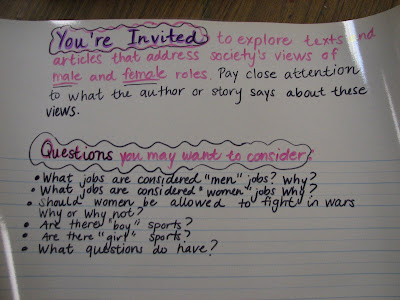 You're Invited to explore texts and
articles that address society's views of
male and female roles. Pay close attention
to what the author or story says about these
views.
Questions you may want to consider:
• What jobs are considered "men" jobs? why?
• What jobs are considered "women" jobs why?
• Should women be allowed to fight in wars
why or why not?
• Are there "boy" sports?
• Are there "girl" sports?
• What questions do have?